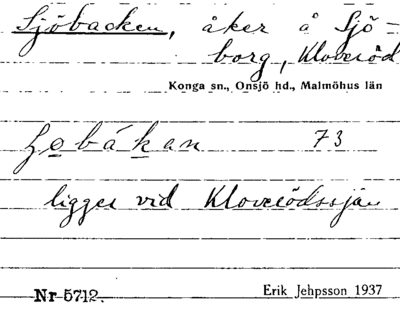 Sjöbacken, åker å Sjö=
borg, Kloveröd
Konga sn., Onsjö hd., Malmöhus län
bákan 73
ligger vid Kloverödssjön
Nr 5712.
Erik Jehpsson 1937